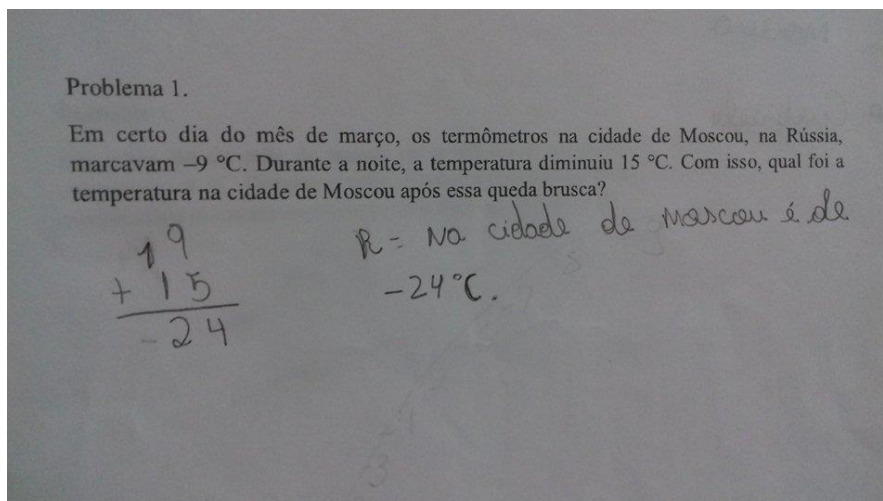 Problema 1.
Em certo dia do mês de março, os termômetros na cidade de Moscou, na Rússia,
marcavam –9 °C. Durante a noite, a temperatura diminuiu 15 °C. Com isso, qual foi a
temperatura na cidade de Moscou após essa queda brusca?
R = Na cidade de moscou é de
-24°C.
1
9
+ 15
-24